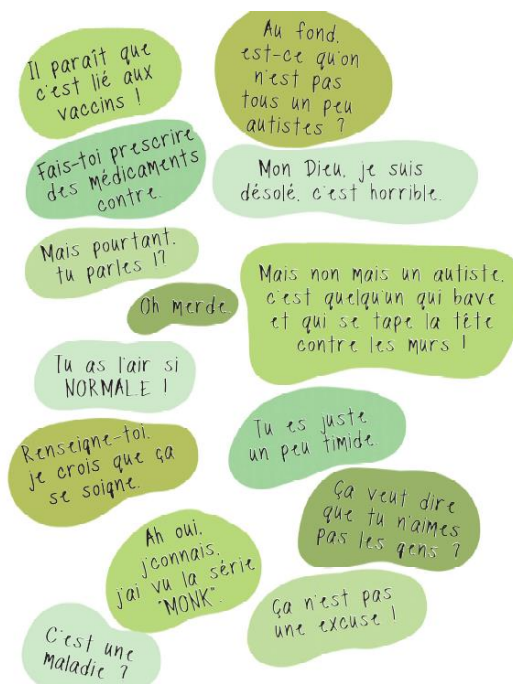 Il paraît que
c'est lié aux
vaccins !
Au fond,
est-ce qu'on
n'est pas
tous un peu
autistes ?
Fais-toi prescrire
des médicaments
contre.
Mon Dieu, je suis
désolé, c'est horrible.
Mais pourtant,
tu parles !?
Oh merde.
Mais non mais un autiste,
c'est quelqu'un qui bave
et qui se tape la tête
contre les murs !
Tu as l'air si
NORMALE !
Tu es juste
un peu timide.
Renseigne-toi,
je crois que ça
se soigne.
Ça veut dire
que tu n'aimes
pas les gens ?
Ah oui,
j'connais,
j'ai vu la série
"MONK".
Ça n'est pas
une excuse !
C'est une
maladie ?